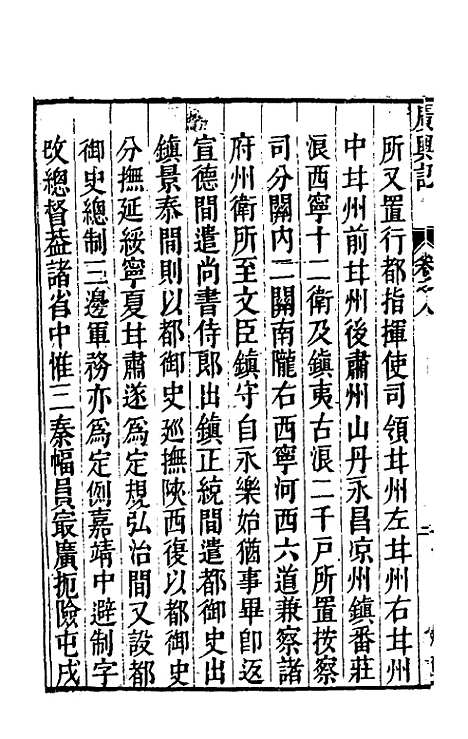 廣輿記
卷之八
所又置行都指揮使司領甘州左甘州右甘州
中甘州前甘州後肅州山丹永昌凉州鎮番莊
浪西寧十二衛及鎮夷古浪二千戶所置按察
司分關內二關南隴右西寧河西六道兼察諸
府州衛所至文臣鎮守自永樂始猶事畢卽返
宣德間遣尚書侍郎出鎮正統間遣都御史出
鎮景泰間則以都御史廵撫陝西復以都御史
分撫延綏寧夏甘肅遂爲定規弘治間又設都
御史總制三邊軍務亦爲定例嘉靖中避制字
改總督葢諸省中惟三秦幅員寂廣扼險屯戍